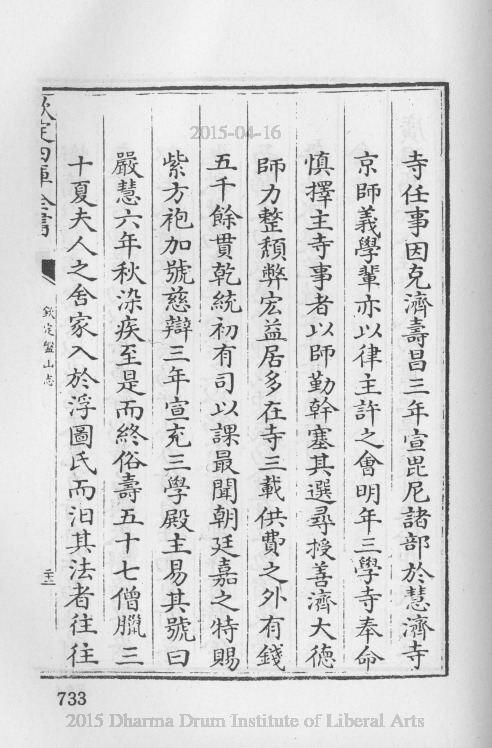 2015-04-16
寺任事因克濟壽昌三年宣毘尼諸部於慧濟寺
京師義學輩亦以律主許之會明年三學寺奉命
慎擇主寺事者以師勤幹塞其選尋授善濟大德
師力整頹弊宏益居多在寺三載供費之外有錢
五千餘貫乾統初有司以課最聞朝廷嘉之特賜
紫方袍加號慈辯三年宣充三學殿主易其號曰
嚴慧六年秋染疾至是而終俗壽五十七僧臘三
十夏夫人之舍家入於浮圖氏而汩其法者往往
欽定四庫全書
欽定盤山志
733
2015 Dharma Drum Institute of Liberal Arts